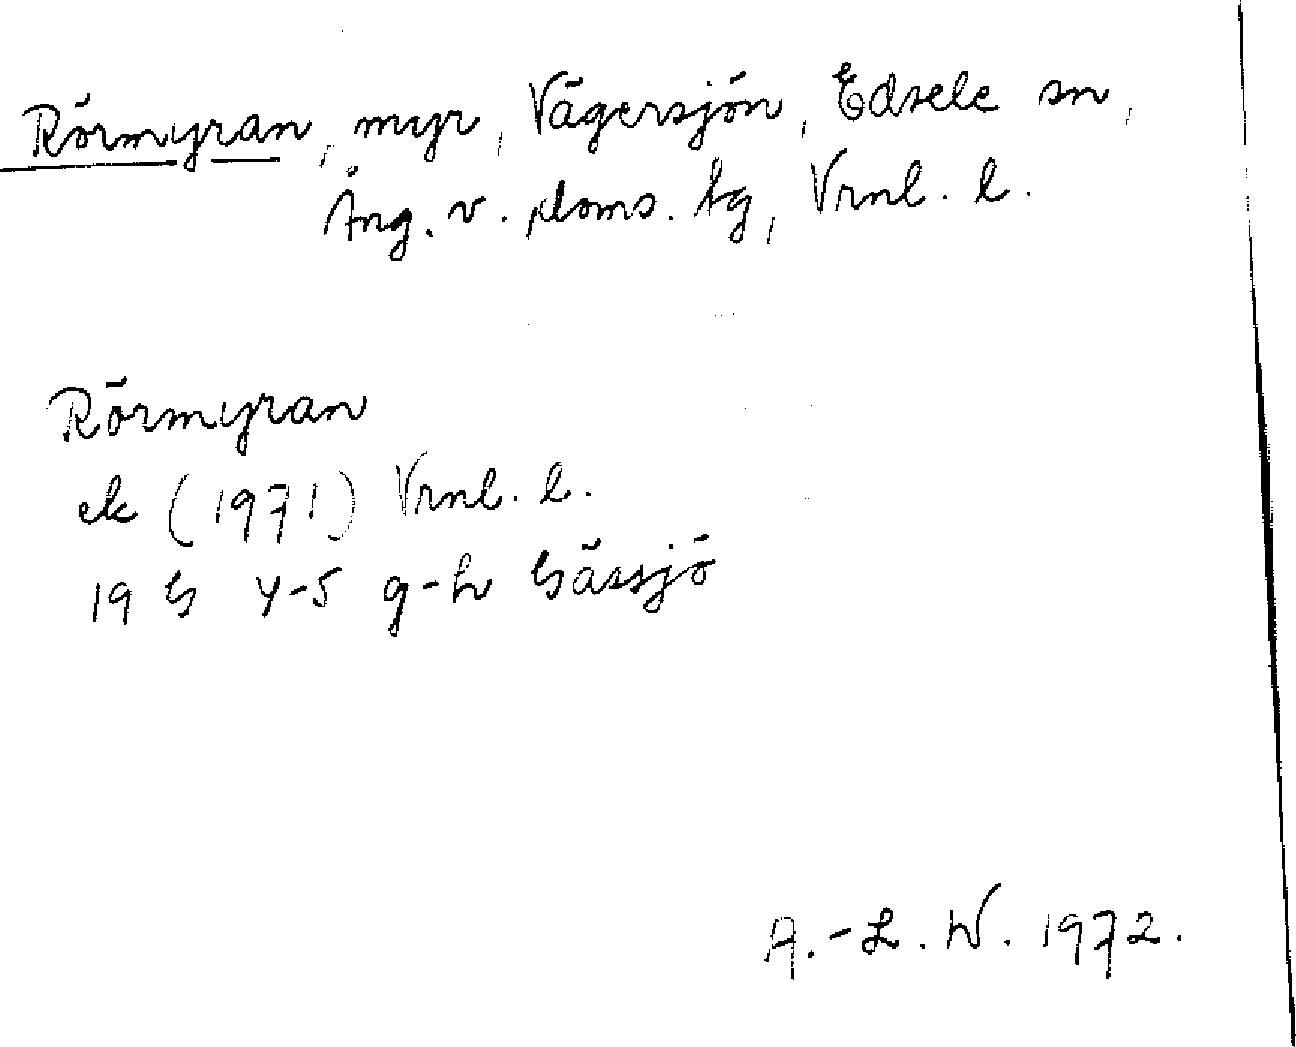 Rörmyran, myr, Vägersjön, Edsele sn,
Ång. v. doms. tg, Vrnl. l.
Rörmyran
ek (1971) Vrnl. l.
19 G 4-5 g-h Gässjö
A.-L. W. 1972.